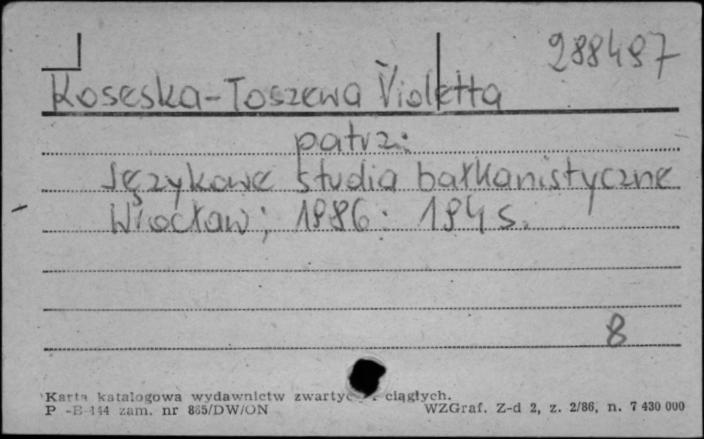 288497
Koseska-Toszewa Violetta
patrz:
Językowe studia bałkanistyczne
Wrocław; 1986: 194 s.
8
Karta katalogowa wydawnictw zwartyc ciągłych.
P -B-144 zam. nr 865/DW/ON
WZGraf. Z-d 2, z. 2/86, n. 7 430 000